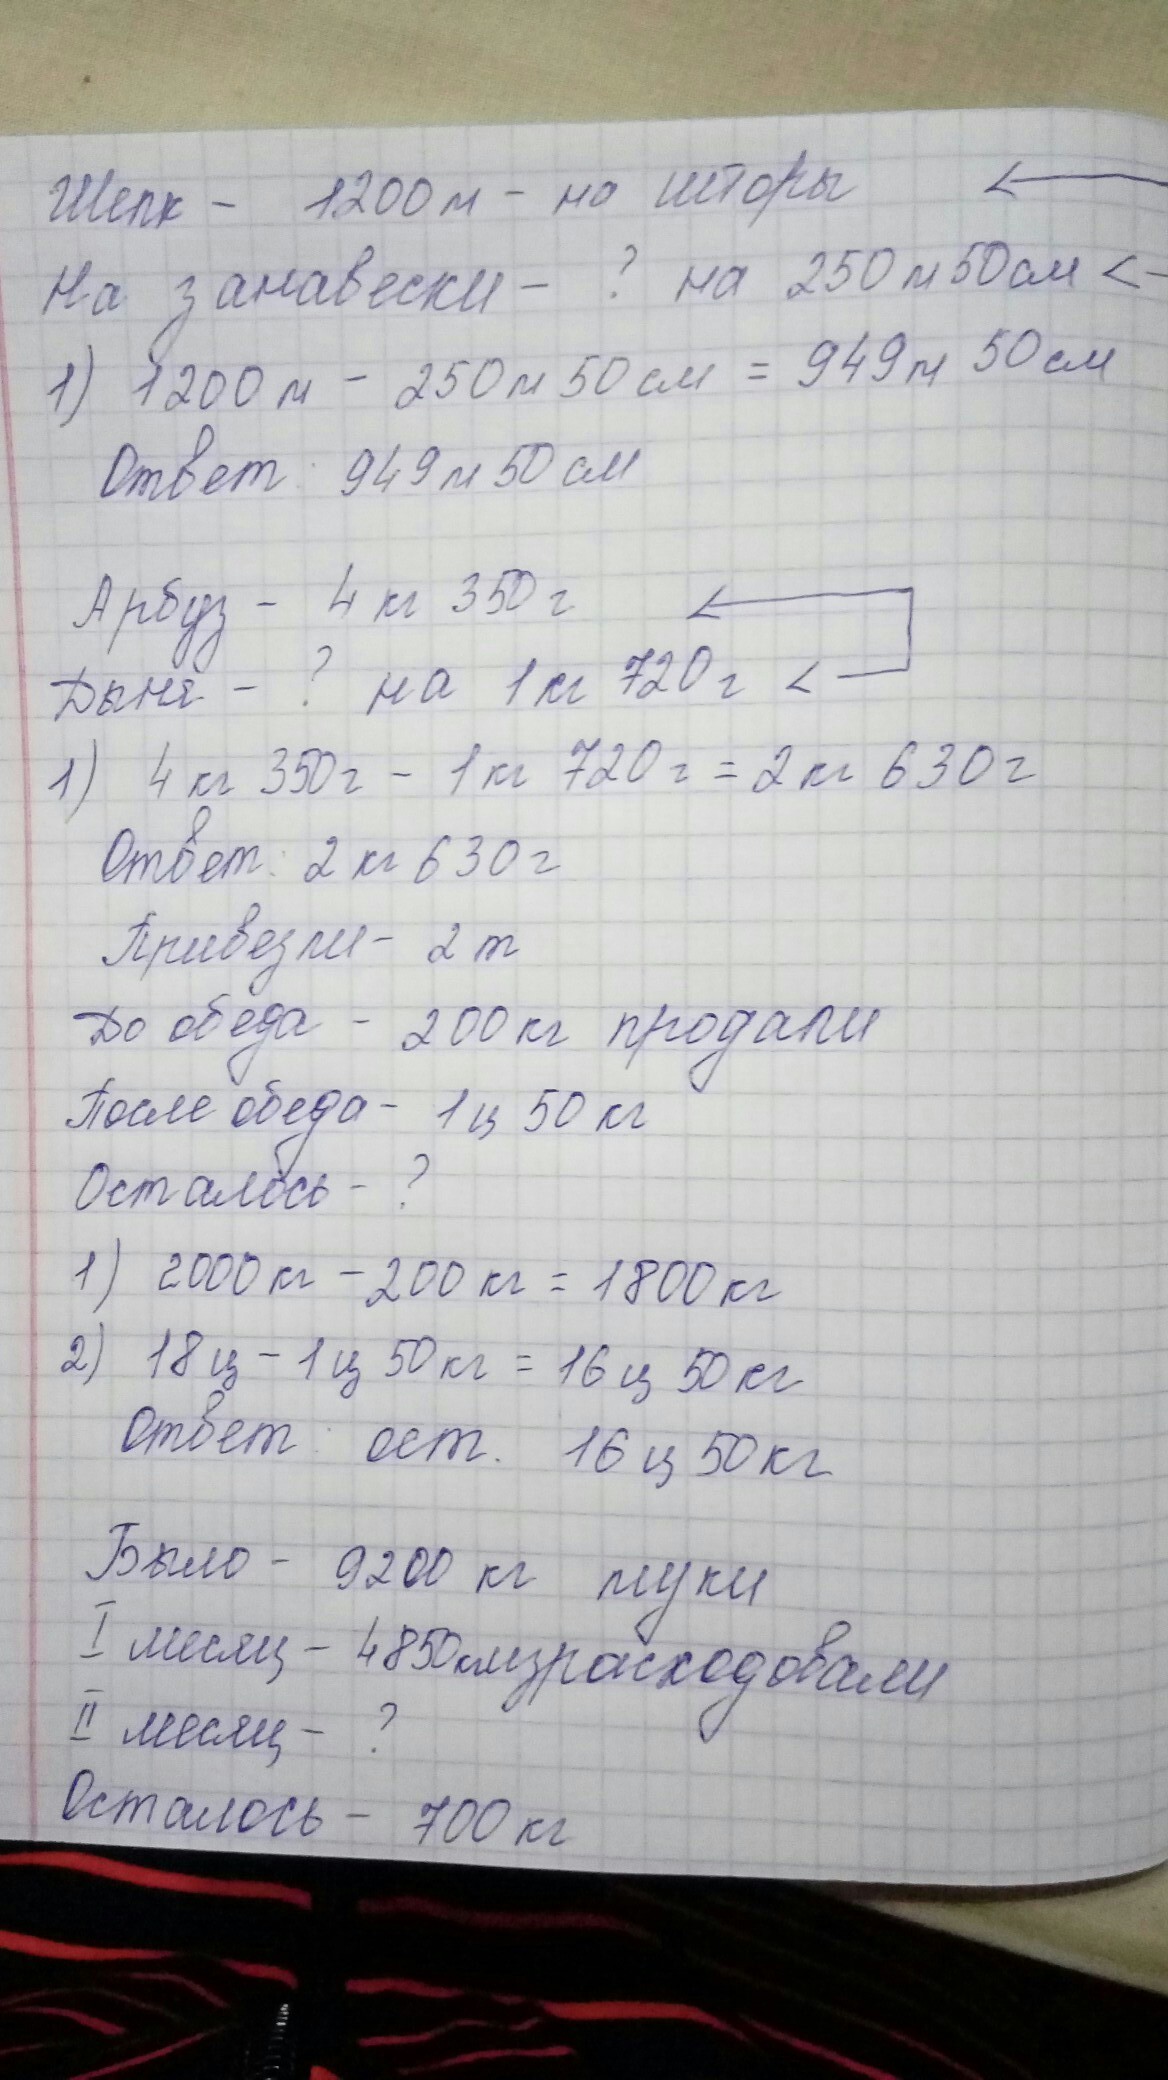 Шелк - 1200 м - на шторы
На занавески - ? на 250 м 50 см <
1) 1200 м - 250 м 50 см = 949 м 50 см
Ответ: 949 м 50 см
Арбуз - 4 кг 350 г
Дыня - ? на 1 кг 720 г <
1) 4 кг 350 г - 1 кг 720 г = 2 кг 630 г
Ответ: 2 кг 630 г
Привезли - 2 т
До обеда - 200 кг продали
После обеда - 1 ц 50 кг
Осталось - ?
1) 2000 кг - 200 кг = 1800 кг
2) 18 ц - 1 ц 50 кг = 16 ц 50 кг
Ответ: ост. 16 ц 50 кг
Было - 9200 кг муки
I месяц - 4850 кг израсходовали
II месяц - ?
Осталось - 700 кг